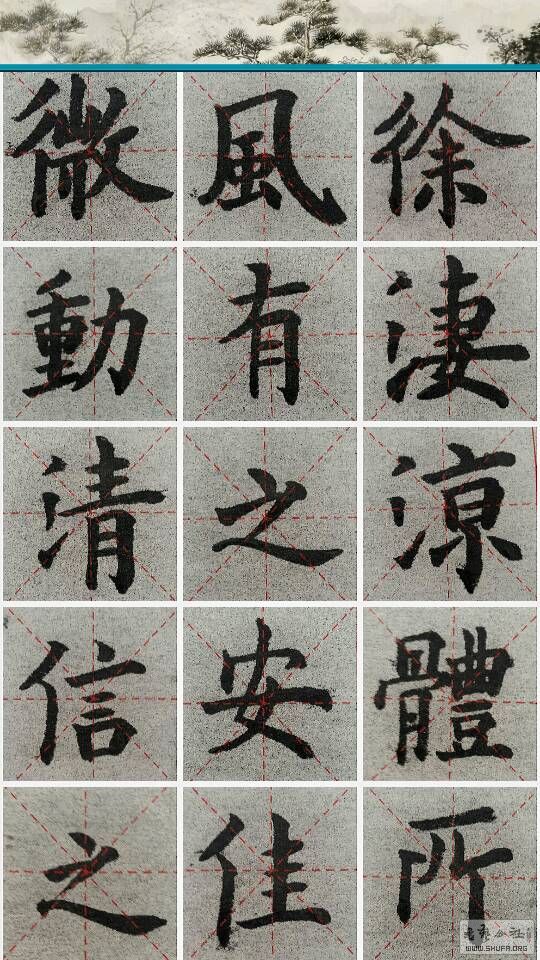 微風徐
動有淒
清之涼
信安體
之佳所
WWW.SHUFA.ORG